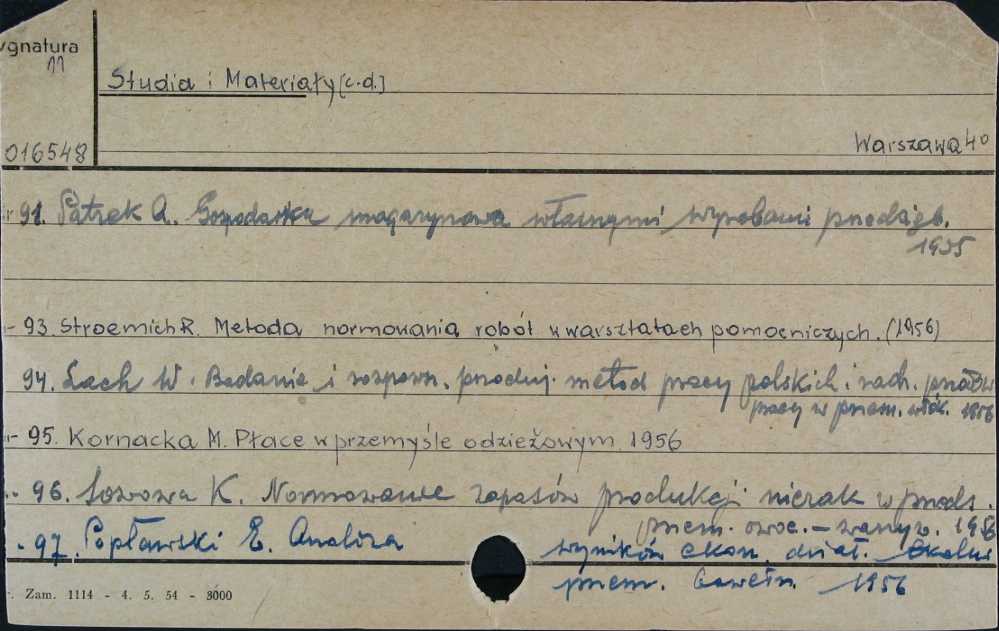 ygnatura
11
Studia i Materiały [c.d.]
016548
Warszawa 40
91. Patzek A. Gospodarka magazynowa własnymi wyrobami przedsięb.
1955
93. Stroemich R. Metoda normowania robót w warsztatach pomocniczych. (1956)
94. Lach W. Badanie i rozpown. przoduj. metod pracy polskich i radz.
pracy w przem. włók. 1956
95. Kornacka M. Płace w przemyśle odzieżowym 1956
96. Sowowa K. Normowanie zapasów produkcji niezak w przeds.
przem. owoc. – warzyw. 1956
97. Popławski E. Analiza
wyników ekon. dział.
przem. bawełn. 1956
Zam. 1114 - 4. 5. 54 - 3000